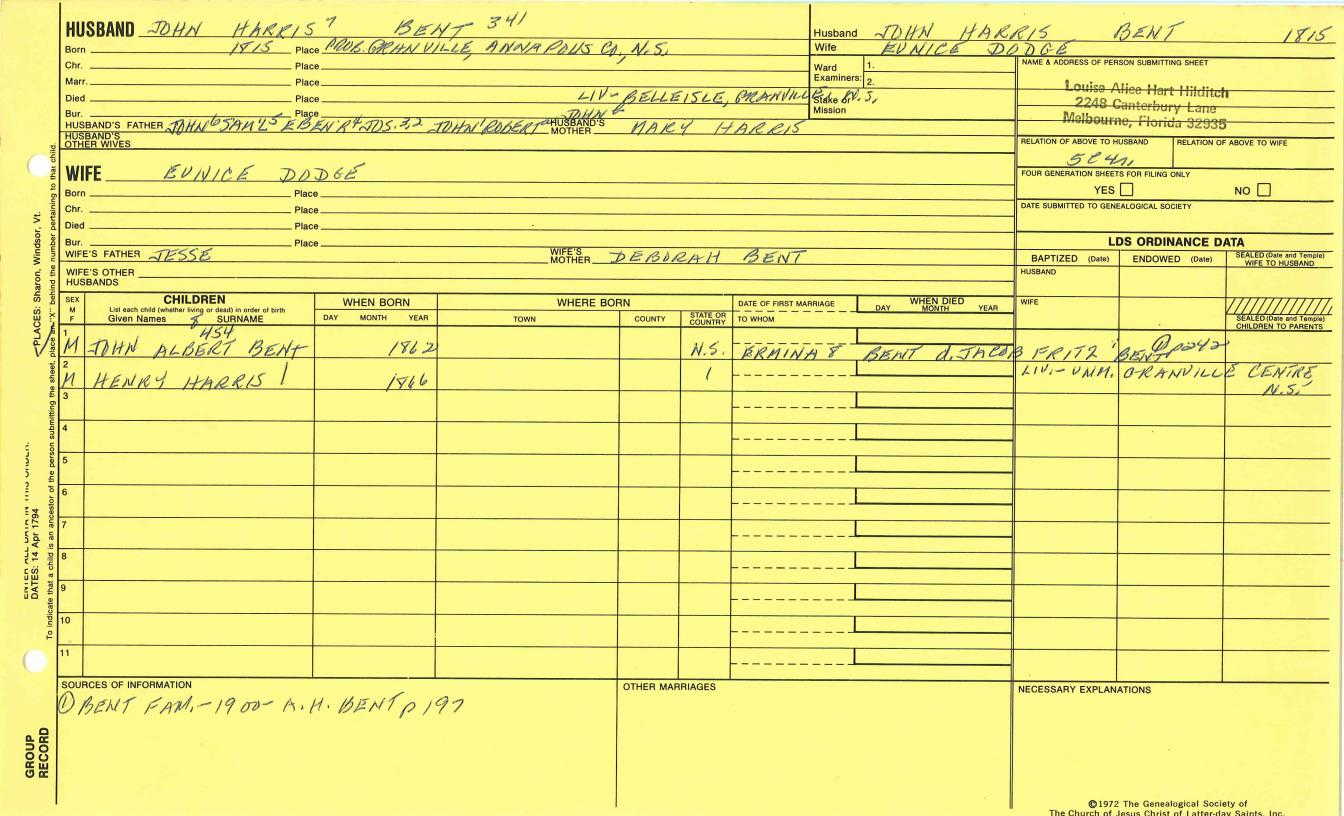 HUSBAND JOHN HARRIS 7 BENT 341
Born 1815 Place PROB. GRANVILLE, ANNAPOLIS CO, N.S.
Chr. Place
Marr. Place
Died Place LIV- BELLEISLE, GRANVILLE, N.S.
Bur. Place
HUSBAND'S FATHER JOHN 6 SAM'L 5 EBEN'R 4 JOS. 3,2 JOHN ROBERT JOHN HUSBAND'S MOTHER MARY HARRIS
HUSBAND'S OTHER WIVES
Husband JOHN HARRIS BENT 1815
Wife EUNICE DODGE
Ward 1.
Examiners: 2.
Stake or Mission
NAME & ADDRESS OF PERSON SUBMITTING SHEET
Louise Alice Hart Hilditch
2248 Canterbury Lane
Melbourne, Florida 32935
RELATION OF ABOVE TO HUSBAND RELATION OF ABOVE TO WIFE
FOUR GENERATION SHEETS FOR FILING ONLY
YES NO
DATE SUBMITTED TO GENEALOGICAL SOCIETY
WIFE EUNICE DODGE
Born Place
Chr. Place
Died Place
Bur. Place
WIFE'S FATHER JESSE WIFE'S MOTHER DEBORAH BENT
WIFE'S OTHER HUSBANDS
LDS ORDINANCE DATA
BAPTIZED (Date) ENDOWED (Date) SEALED (Date and Temple) WIFE TO HUSBAND
HUSBAND
WIFE
SEALED (Date and Temple) CHILDREN TO PARENTS
SEX M F
CHILDREN
List each child (whether living or dead) in order of birth
Given Names SURNAME
WHEN BORN
DAY MONTH YEAR
WHERE BORN
TOWN COUNTY STATE OR COUNTRY
DATE OF FIRST MARRIAGE
TO WHOM
WHEN DIED
DAY MONTH YEAR
1 M JOHN ALBERT 8 BENT 454 1862 N.S. ERMINA 8 BENT d. JACOB FRITZ BENT ① p242
2 M HENRY HARRIS 1866 LIV.- UNM. GRANVILLE CENTRE, N.S.
3
4
5
6
7
8
9
10
11
SOURCES OF INFORMATION
① BENT FAM.-1900- A.H. BENT p 197
OTHER MARRIAGES
NECESSARY EXPLANATIONS
©1972 The Genealogical Society of
The Church of Jesus Christ of Latter-day Saints, Inc.
PLACES: Sharon, Windsor, Vt.
DATES: 14 Apr 1794
ENTER ALL DATA IN THIS ORDER:
To indicate that a child is an ancestor of the person submitting the sheet, place an "X" behind the number pertaining to that child.
GROUP
RECORD